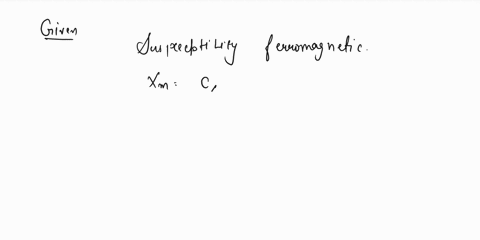 Given
Susceptibility ferromagnetic.
Xm: C,